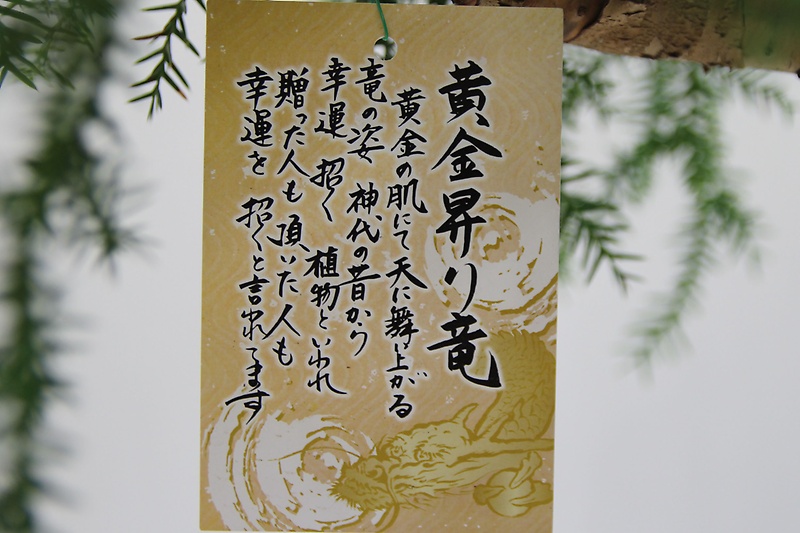 黄金昇り竜
黄金の肌にて天に舞い上がる
竜の姿 神代の昔から
幸運 招く 植物といわれ
贈った人も頂いた人も
幸運を 招くと言われてます